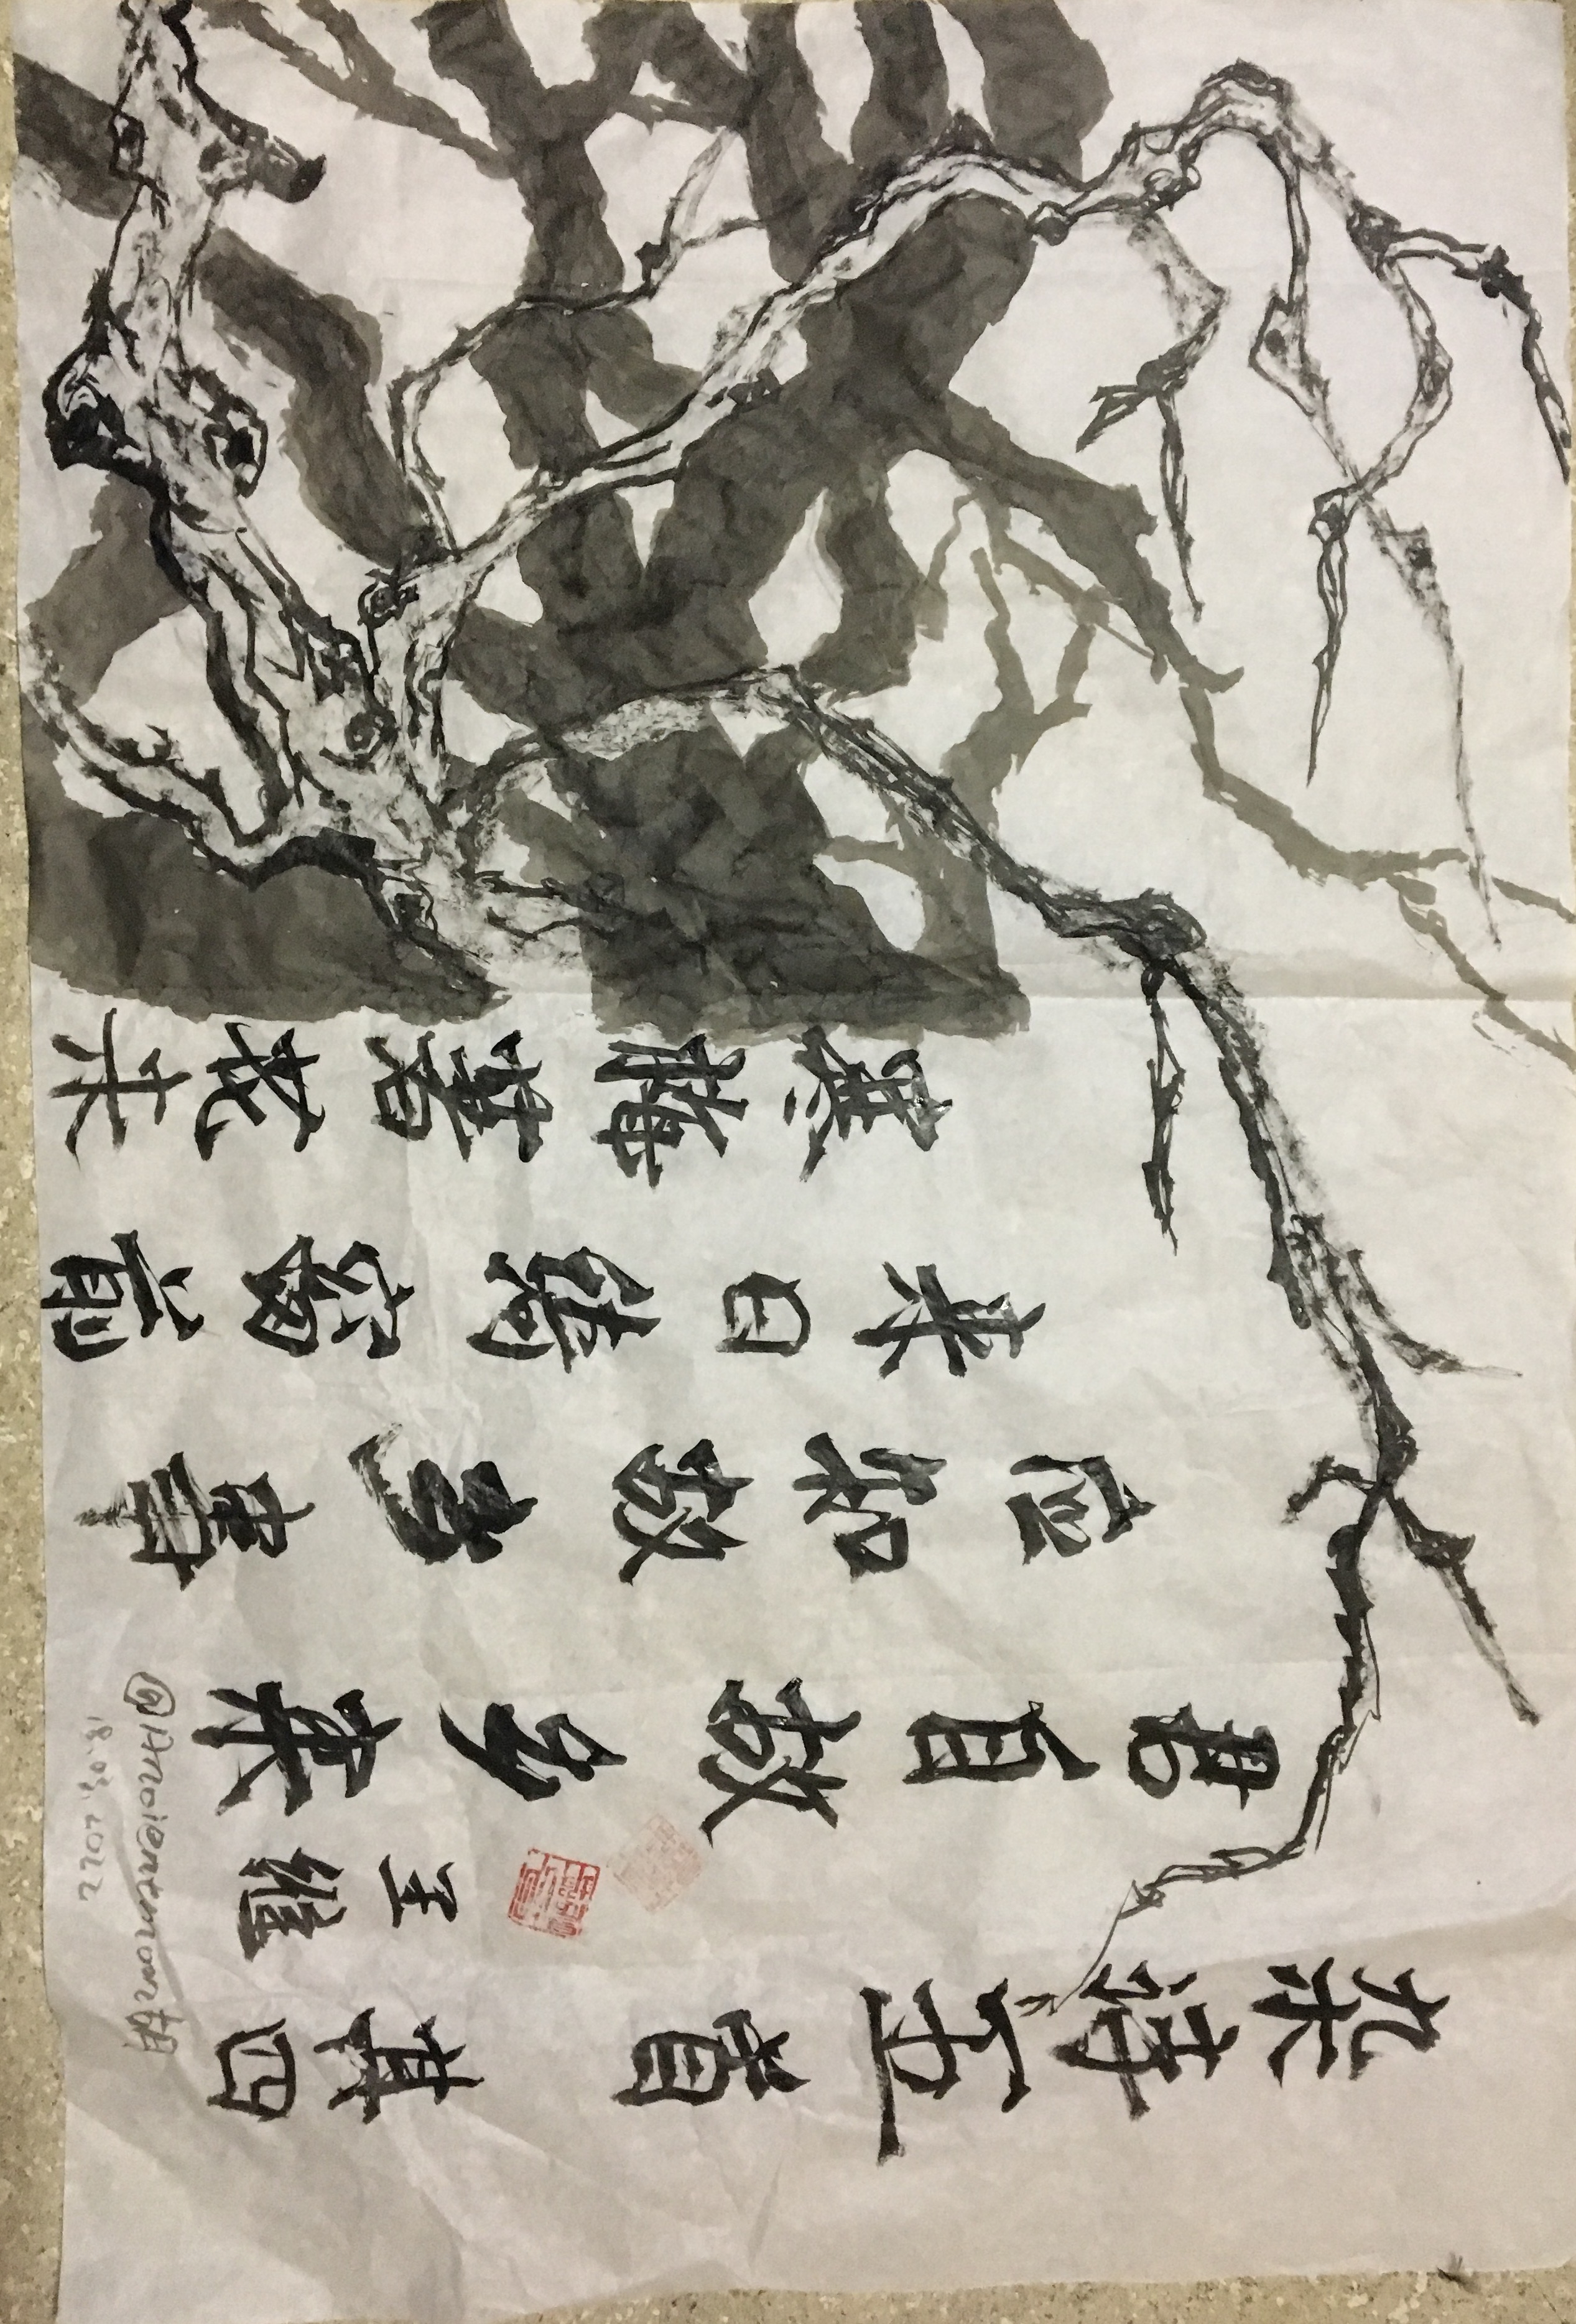 杂诗五首 其四
王维
君自故乡来
应知故乡事
来日绮窗前
寒梅著花未
@Ancientmoon胡
18.03.2022